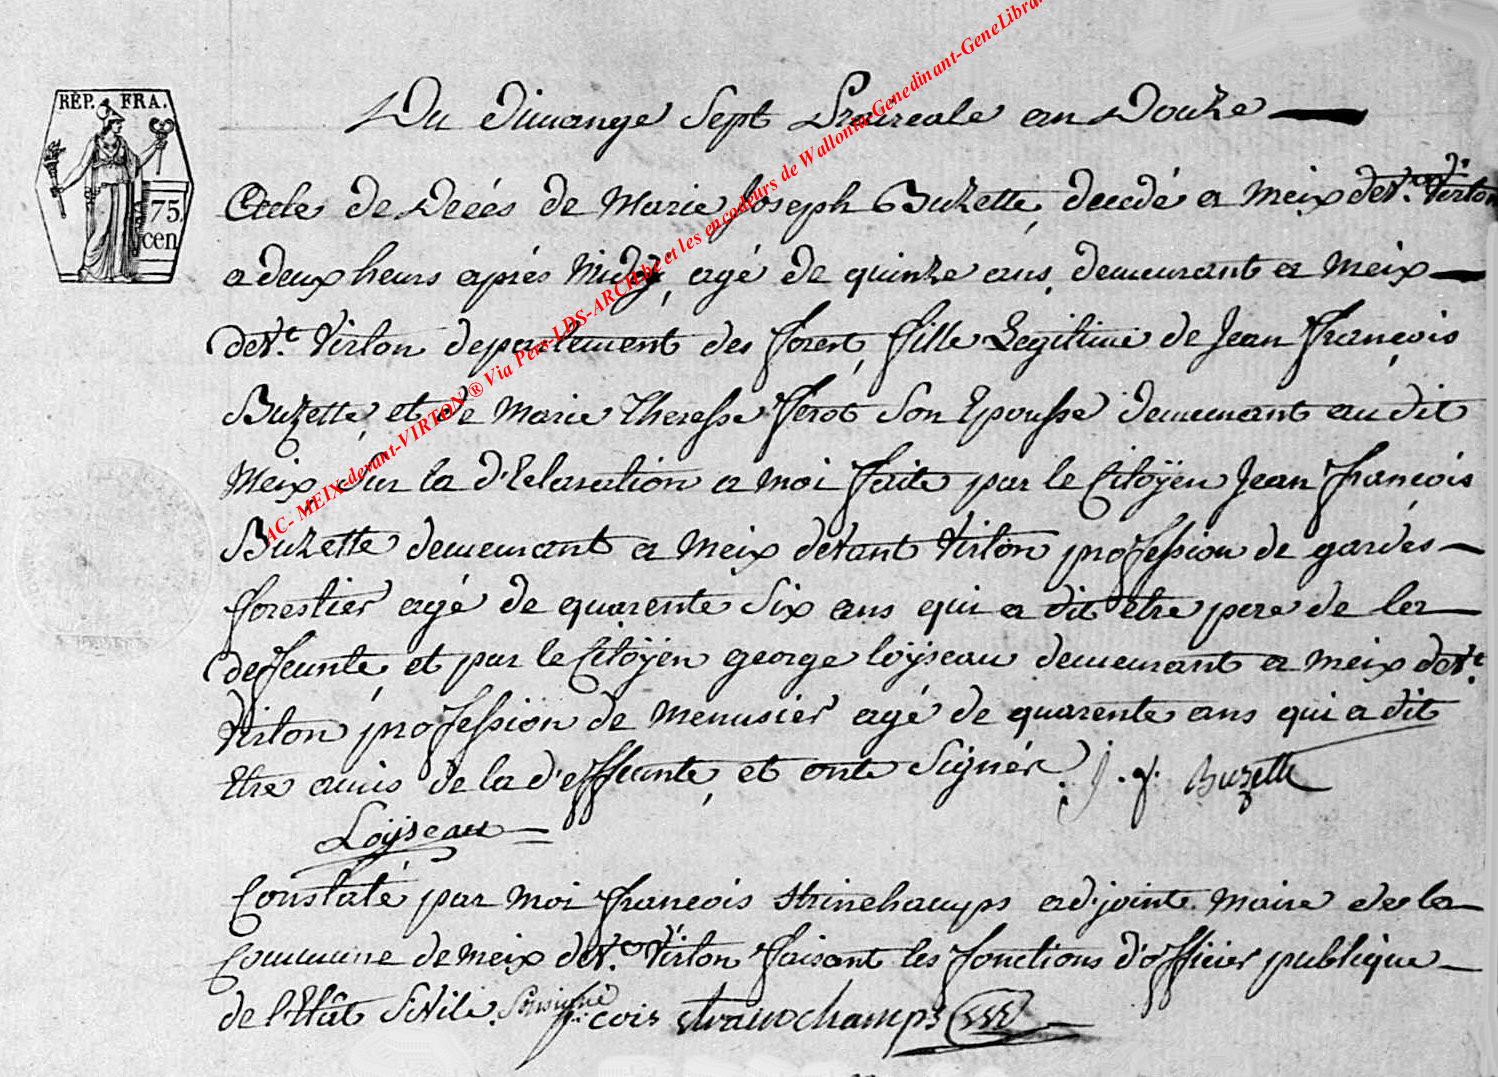 RÉP. FRA.
75.
cen
Du dimange Sept Praireale an Douze
Acte de Décés de Marie Joseph Buzette, decedé a Meix devt. Virton
a deux heurs aprés Midy, agé de quinze ans, demeurant a Meix
devt. Virton departement des forest, fille Legitime de Jean françois
Buzette, et de Marie Theresse ferot Son Epousse demeurant au dit
Meix, Sur la d'Eclaration a moi faite par le Citoÿen Jean françois
Buzette demeurant a Meix devant Virton profession de gardes
forestier agé de quarente Six ans qui a dit etre pere de la
deffunte, et par le Citoÿen george loÿseau demeurant a Meix devt.
Virton profession de Menusier agé de quarente ans qui a dit
Etre amis de la d'effunte, et onte Signér J. f. Buzette
Loÿseau
Constaté par moi françois adjointe Maire de la
Commune de Meix devt. Virton faisant les fonctions d'officier publique
de l'Etât Sivile. Sousigné fcois
AC- MEIX-devant-VIRTON ® Via Pers-LDS-ARCH.be et les encodeurs de Wallonia-Genedinant-GeneLibra